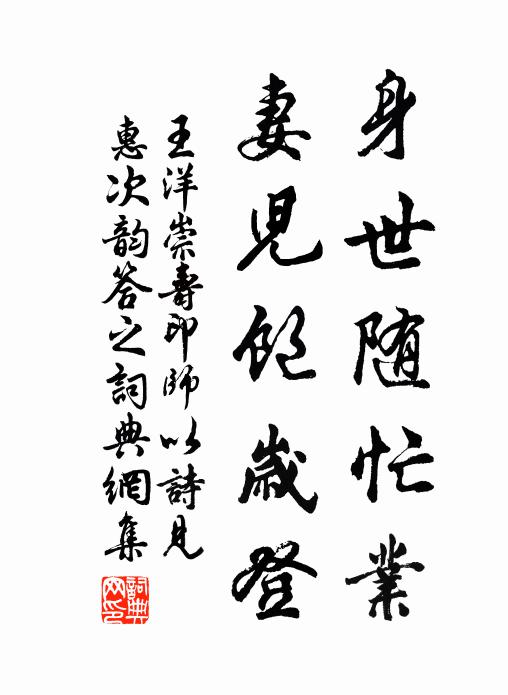 身世随忙業
妻児飽歳登
王洋崇壽印師以詩見
惠次韵答之詞典網集
詞典网印